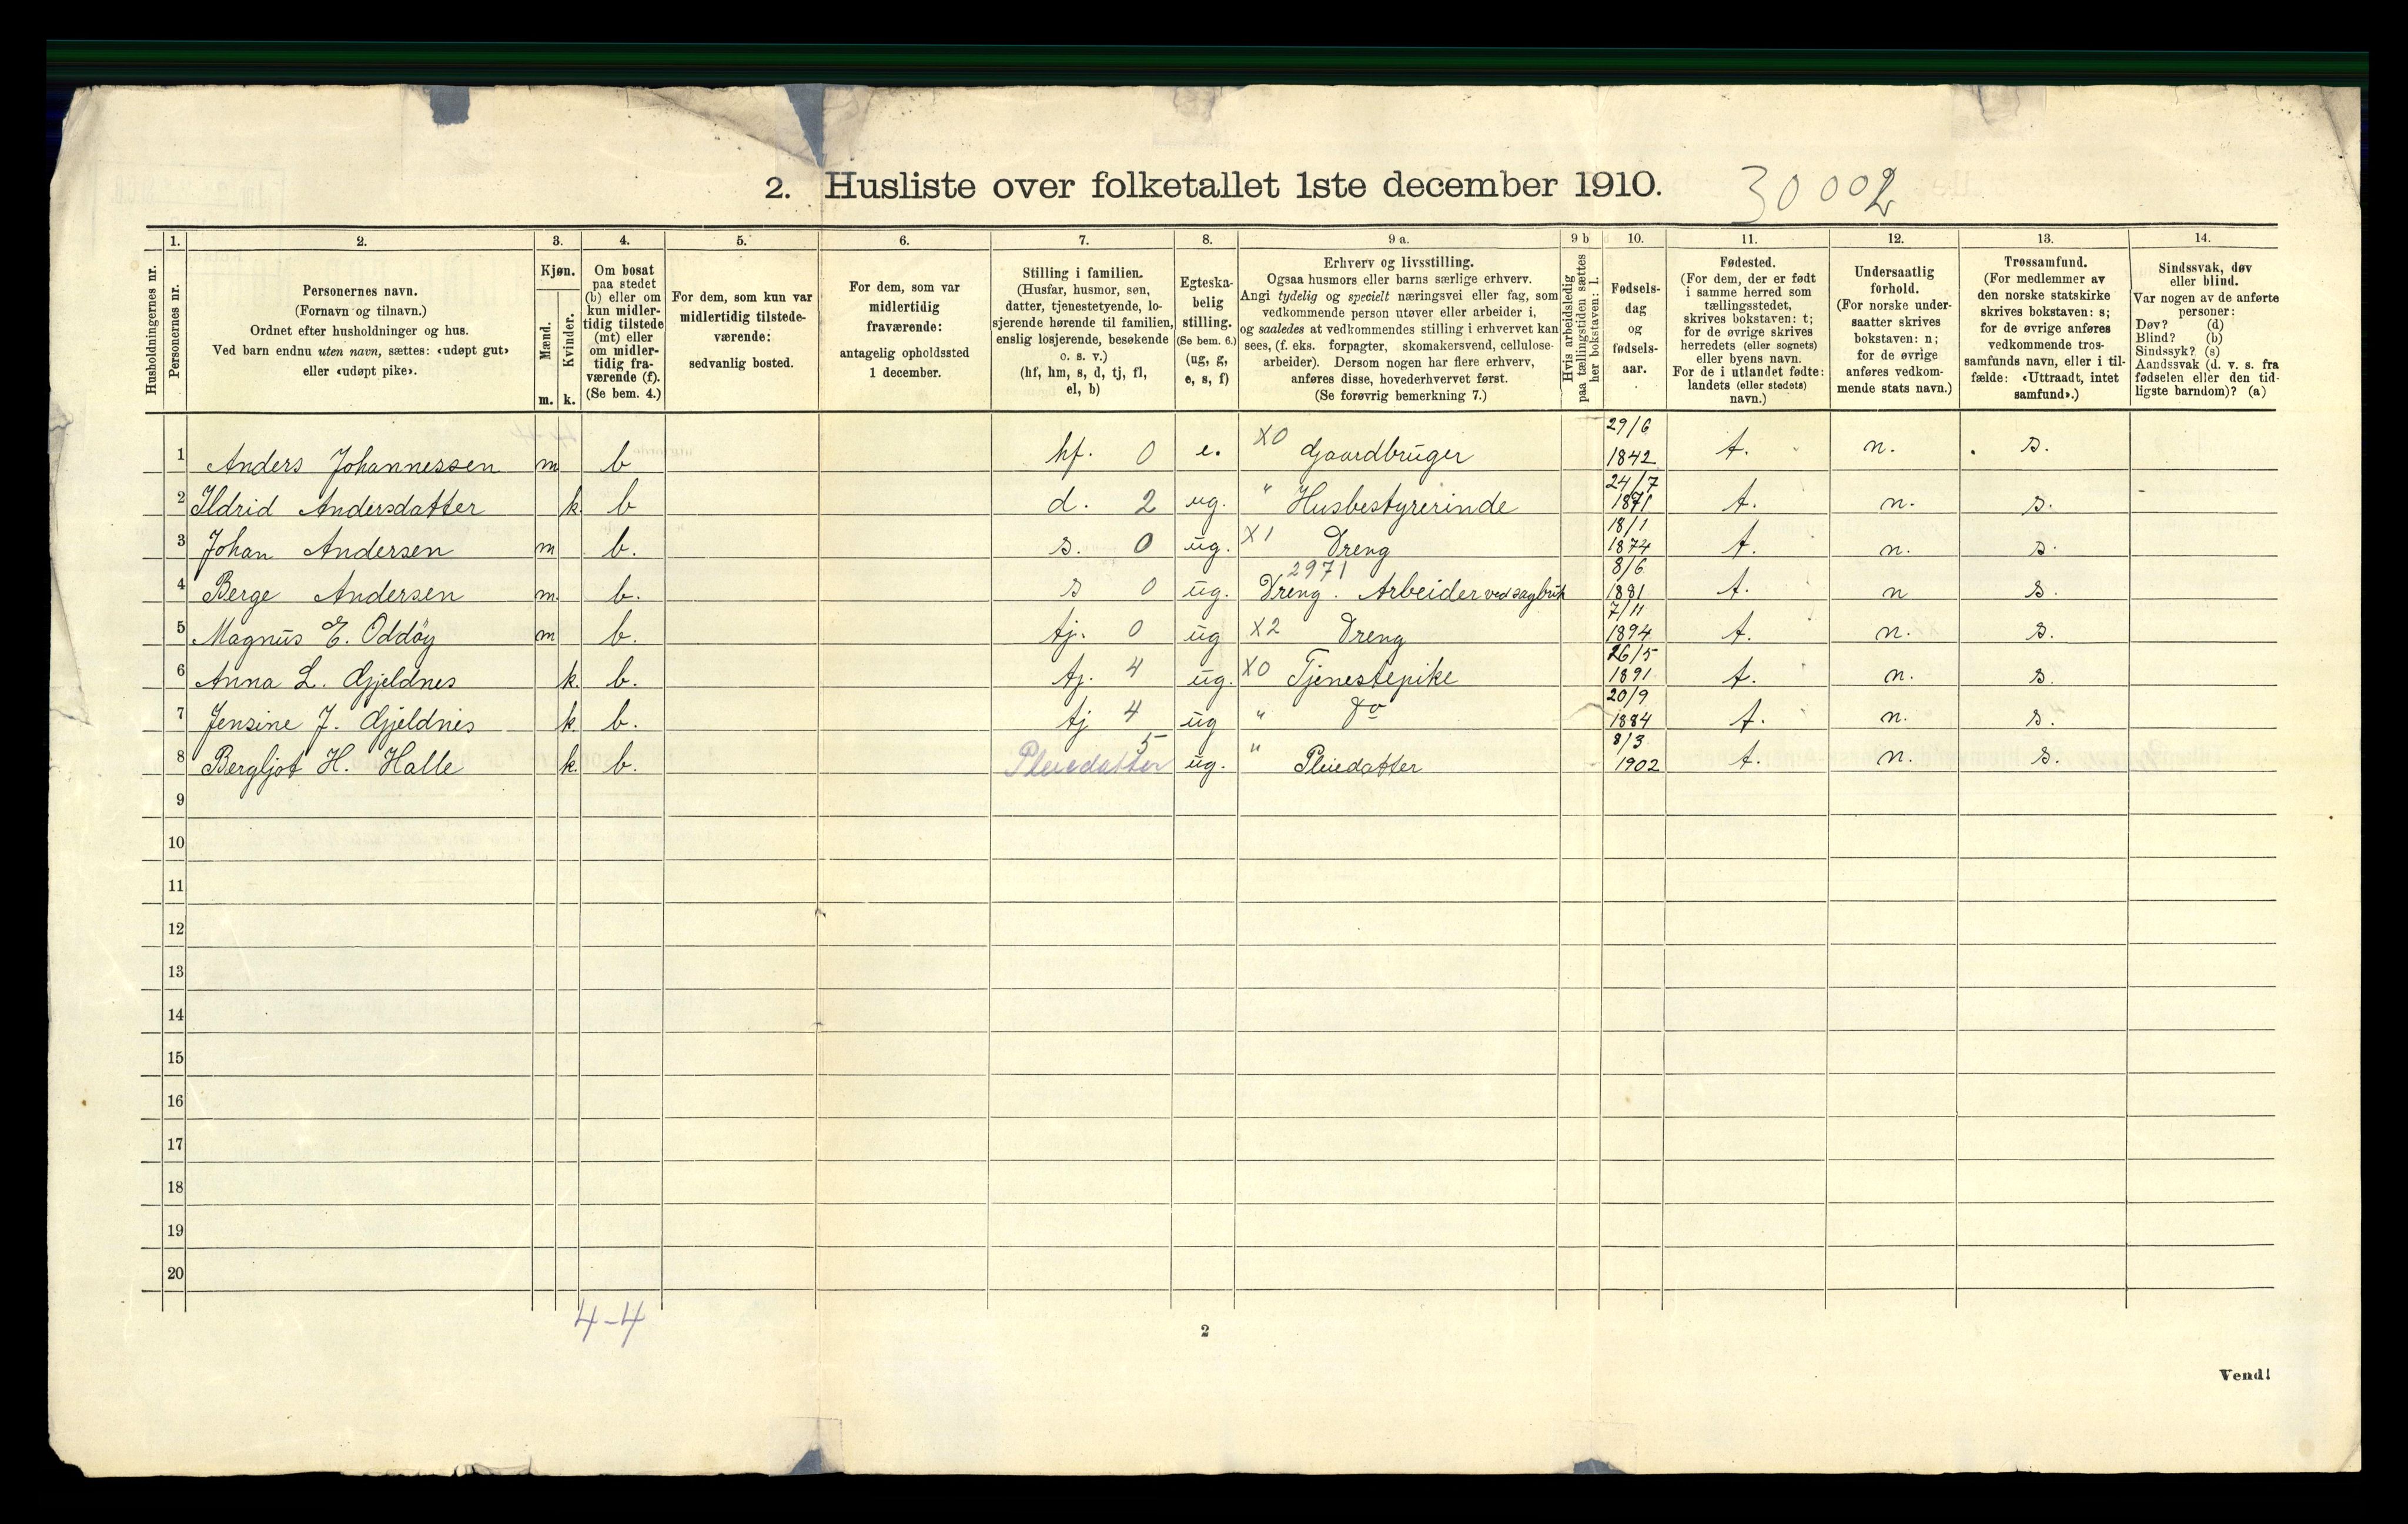 2. Husliste over folketallet 1ste december 1910. 30 002
1. 2. 3. 4. 5. 6. 7. 8. 9 a. 9 b 10. 11. 12. 13. 14.
Husholdningernes nr.
Personernes nr.
Personernes navn.
(Fornavn og tilnavn.)
Ordnet efter husholdninger og hus.
Ved barn endnu uten navn, sættes: «udøpt gut»
eller «udøpt pike».
Kjøn.
Mænd.
Kvinder.
m. k.
Om bosat
paa stedet
(b) eller om
kun midler-
tidig tilstede
(mt) eller
om midler-
tidig fra-
værende (f).
(Se bem. 4.)
For dem, som kun var
midlertidig tilstede-
værende:
sedvanlig bosted.
For dem, som var
midlertidig
fraværende:
antagelig opholdssted
1 december.
Stilling i familien.
(Husfar, husmor, søn,
datter, tjenestetyende, lo-
sjerende hørende til familien,
enslig losjerende, besøkende
o. s. v.)
(hf, hm, s, d, tj, fl,
el, b)
Egteska-
belig
stilling.
(Se bem. 6.)
(ug, g,
e, s, f)
Erhverv og livsstilling.
Ogsaa husmors eller barns særlige erhverv.
Angi tydelig og specielt næringsvei eller fag, som
vedkommende person utøver eller arbeider i,
og saaledes at vedkommendes stilling i erhvervet kan
sees, (f. eks. forpagter, skomakersvend, cellulose-
arbeider). Dersom nogen har flere erhverv,
anføres disse, hovederhvervet først.
(Se forøvrig bemerkning 7.)
Hvis arbeidsledig
paa tællingstiden sættes
her bokstaven: l.
Fødsels-
dag
og
fødsels-
aar.
Fødested.
(For dem, der er født
i samme herred som
tællingsstedet,
skrives bokstaven: t;
for de øvrige skrives
herredets (eller sognets)
eller byens navn.
For de i utlandet fødte:
landets (eller stedets)
navn.)
Undersaatlig
forhold.
(For norske under-
saatter skrives
bokstaven: n;
for de øvrige
anføres vedkom-
mende stats navn.)
Trossamfund.
(For medlemmer av
den norske statskirke
skrives bokstaven: s;
for de øvrige anføres
vedkommende tros-
samfunds navn, eller i til-
fælde: «Uttraadt, intet
samfund».)
Sindssvak, døv
eller blind.
Var nogen av de anførte
personer:
Døv? (d)
Blind? (b)
Sindssyk? (s)
Aandssvak (d. v. s. fra
fødselen eller den tid-
ligste barndom)? (a)
1 Anders Johannessen m b hf. 0 e. X0 Gaardbruger 29/6 1842 t. n. s.
2 Ildrid Andersdatter k. b d. 2 ug. " Husbestyrerinde 24/7 1871 t. n. s.
3 Johan Andersen m b. s. 0 ug. X1 Dreng 18/1 1874 t. n. s.
4 Berge Andersen m. b. s 0 ug. 2971 Dreng. Arbeider ved sagbruk 8/6 1881 t. n s.
5 Magnus E. Oddøy m b. tj. 0 ug X2 Dreng 7/11 1894 t. n. s.
6 Anna L. Gjeldnes k. b. tj. 4 ug. X0 Tjenestepike 26/5 1891 t. n. s.
7 Jensine J. Gjeldnes k b. tj 4 ug " Do 20/9 1884 t. n. s.
8 Bergljot H. Halle k. b. Pleiedatter 5 ug. " Pleiedatter 8/3 1902 t. n. s.
9
10
11
12
13
14
15
16
17
18
19
20
4-4
2
Vend!